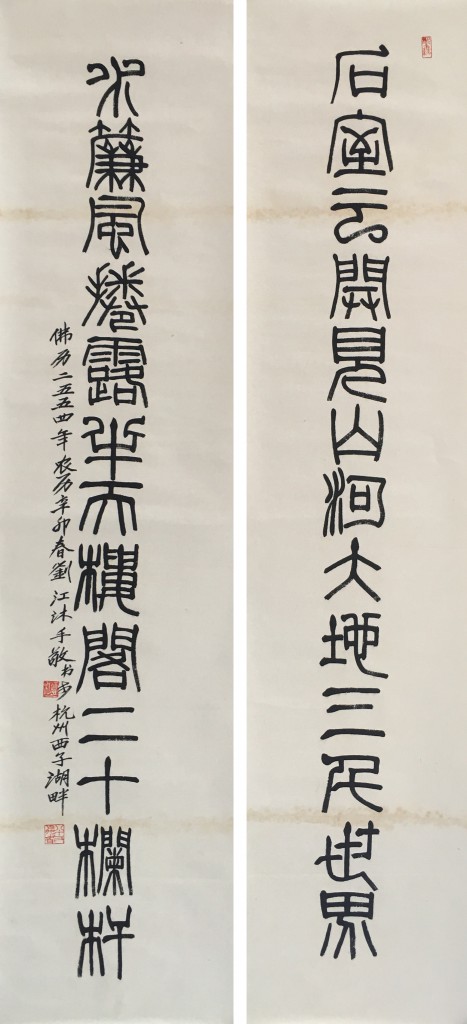 石室云開見山河大地三千世界
水簾風捲露半天樓閣二十欄杆
佛历二五五四年农历辛卯春劉江沐手敬书於杭州西子湖畔